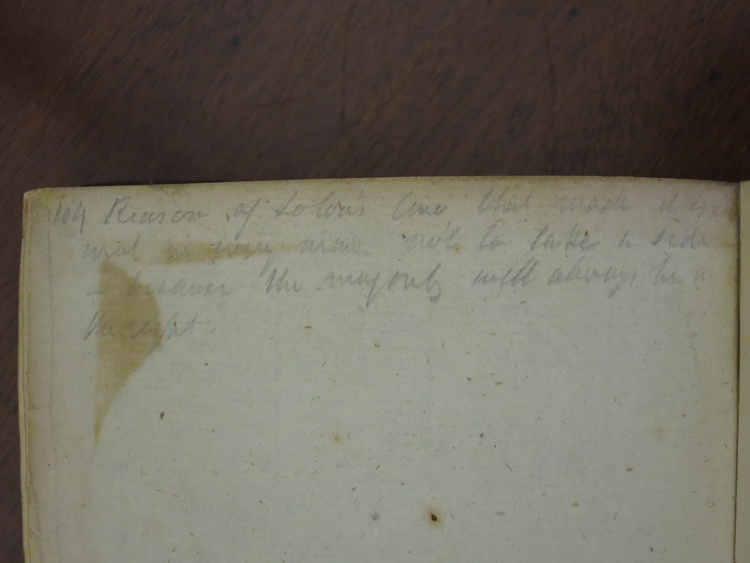 104 Reason of Solon's law that made it cri
minal in every man not to take a side
– because the majority will always be in
the right.